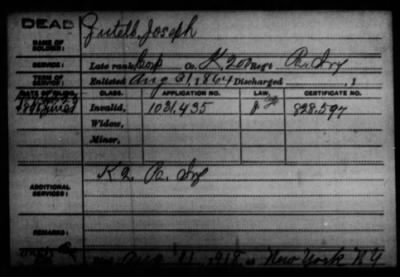 DEAD
NAME OF SOLDIER: Joseph
SERVICE: Late rank, Corp Co. K 200 Reg't Pa. Inf
TERM OF SERVICE: Enlisted Aug 31, 1864 Discharged , 1
DATE OF FILING. CLASS. APPLICATION NO. LAW. CERTIFICATE NO.
Invalid, 1031,435 828,597
Widow,
Minor,
ADDITIONAL SERVICES: K 2. Pa. Inf
REMARKS:
Aug 1918 New York N Y